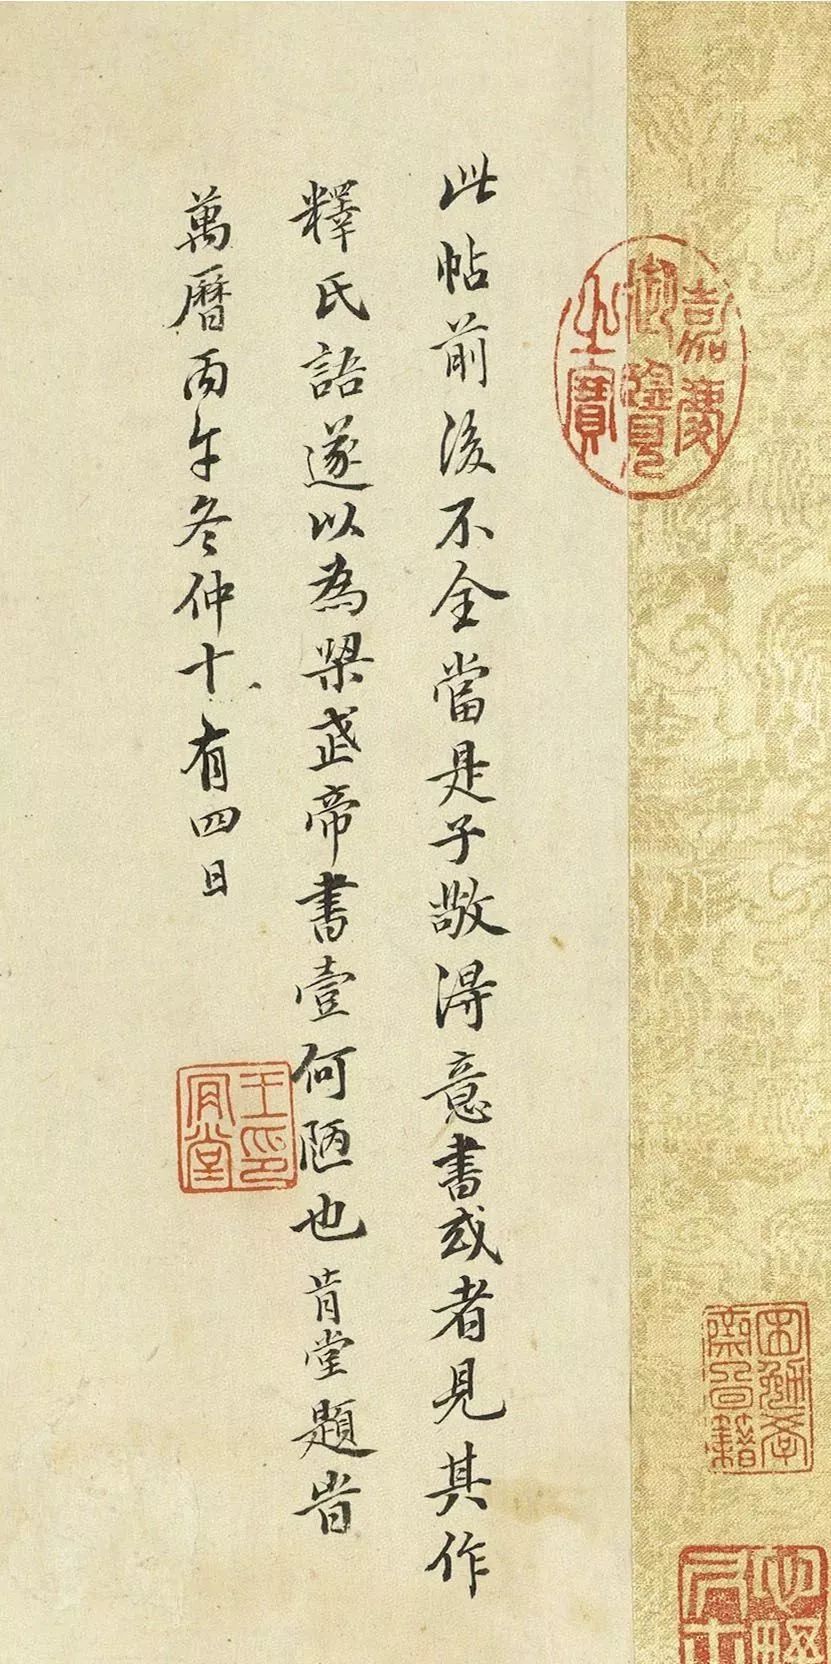 此帖前後不全當是子敬得意書或者見其作
釋氏語遂以為梁武帝書壹何陋也肯堂題旹
萬曆丙午冬仲十有四日
王肯堂印
嘉慶御覽之寶